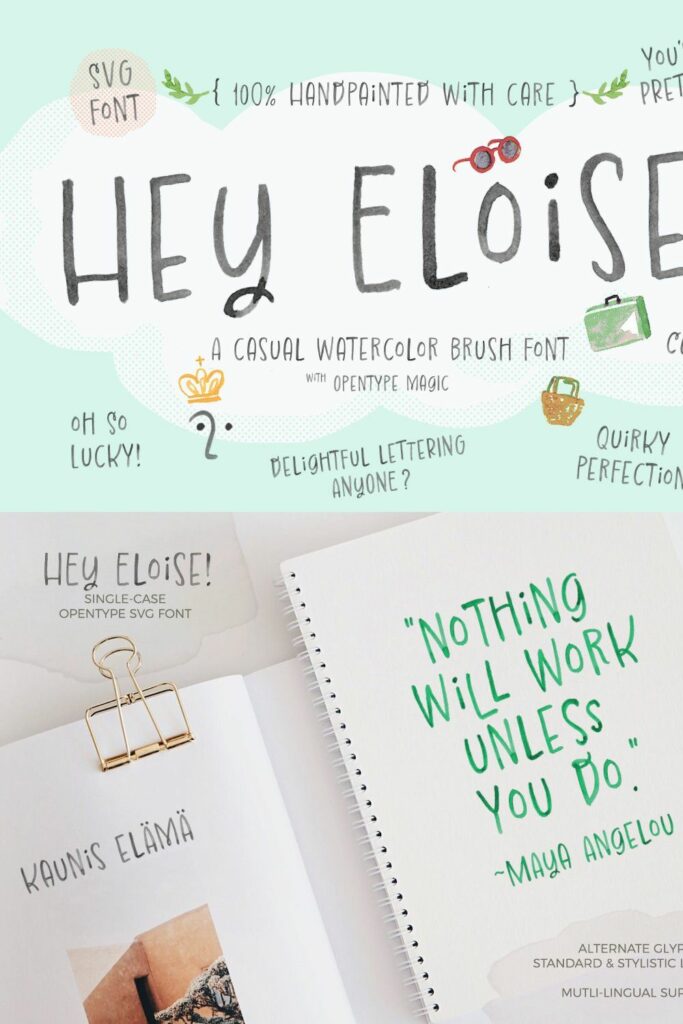 SVG
FONT
{ 100% HANDPAiNTED WiTH CARE }
YOU'
PRET
HEY ELOiSE
A CASUAL WATERCOLOR BRUSH FONT
WITH OPENTYPE MAGIC
OH SO
LUCKY!
DELiGHTFUL LETTERING
ANYONE?
QUiRKY
PERFECTiON
HEY ELOiSE!
SINGLE-CASE
OPENTYPE SVG FONT
"NOTHiNG
WiLL WORK
UNLESS
YOU DO."
~MAYA ANGELOU
KAUNiS ELÄMÄ
ALTERNATE GLYP
STANDARD & STYLISTIC L
MUTLI-LINGUAL SUP